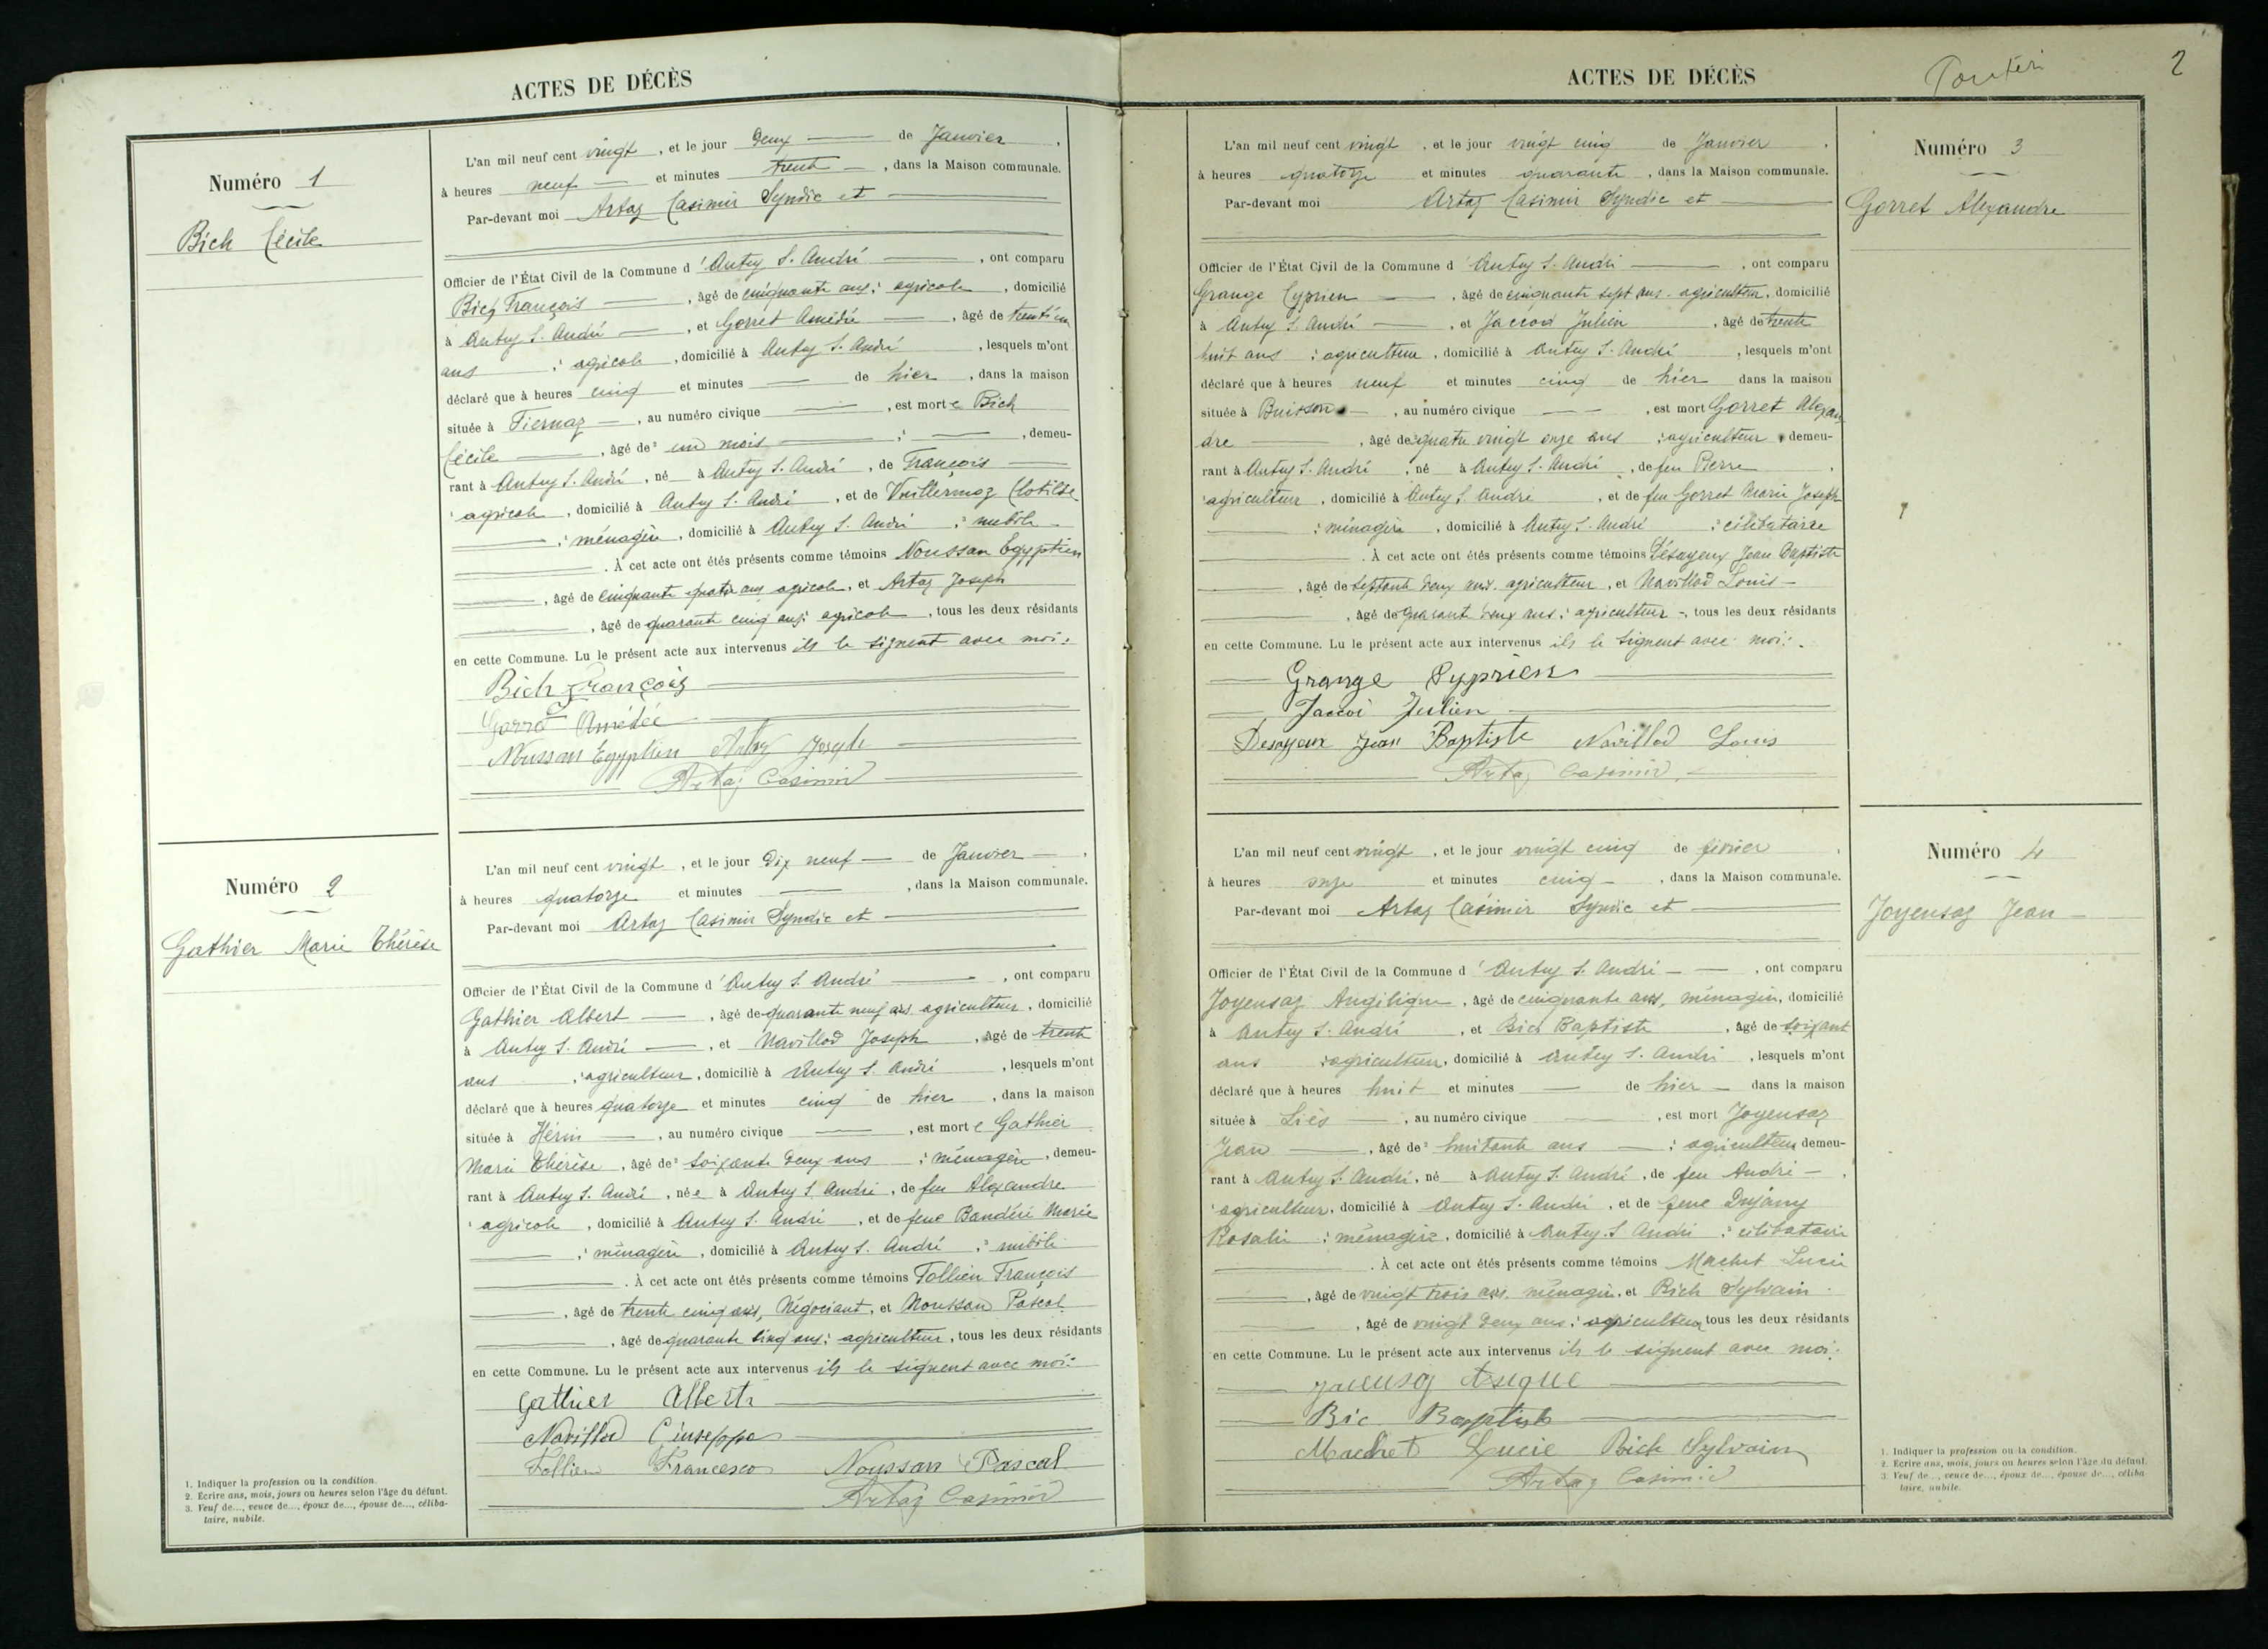 ACTES DE DÉCÈS
Numéro 1
Bich Cécile
L'an mil neuf cent vingt, et le jour deux de Janvier,
à heures neuf et minutes trente, dans la Maison communale.
Par-devant moi Artaz Casimir Syndic et
Officier de l'État Civil de la Commune d'Antey S. André, ont comparu
Bich François, âgé de cinquante ans; agricole, domicilié
à Antey S. André, et Gorret Amédée, âgé de trentecinq
ans; agricole, domicilié à Antey S. André, lesquels m'ont
déclaré que à heures cinq et minutes — de hier, dans la maison
située à Fiernaz, au numéro civique —, est morte Bich
Cécile, âgé de² un mois; —, demeu-
rant à Antey S. André, né à Antey S. André, de François
¹ agricole, domicilié à Antey S. André, et de Vuillermoz Clotilde
—; ménagère, domicilié à Antey S. André ;³ nubile
. À cet acte ont étés présents comme témoins Noussan Egyptien
, âgé de cinquante quatre ans agricole, et Artaz Joseph
, âgé de quarante cinq ans; agricole, tous les deux résidants
en cette Commune. Lu le présent acte aux intervenus ils le signent avec moi:
Bich François
Gorret Amédée
Noussan Egyptien Artaz Joseph
Artaz Casimir
Numéro 2
Gathier Marie Thérèse
L'an mil neuf cent vingt, et le jour Dix neuf de Janvier,
à heures quatorze et minutes —, dans la Maison communale.
Par-devant moi Artaz Casimir Syndic et
Officier de l'État Civil de la Commune d'Antey S. André, ont comparu
Gathier Albert, âgé de quarante neuf ans agriculteur, domicilié
à Antey S. André, et Navillod Joseph, âgé de trente
ans; agriculteur, domicilié à Antey S. André, lesquels m'ont
déclaré que à heures quatorze et minutes cinq de hier, dans la maison
située à Hérin, au numéro civique —, est morte Gathier
Marie Thérèse, âgé de² soixante deux ans; ménagère, demeu-
rant à Antey S. André, née à Antey S. André, de feu Alexandre
¹ agricole, domicilié à Antey S. André, et de feue Bandéri Marie
—; ménagère, domicilié à Antey S. André ;³ nubile
. À cet acte ont étés présents comme témoins Tollien François
, âgé de trente cinq ans, Négociant, et Noussan Pascal
, âgé de quarante cinq ans; agriculteur, tous les deux résidants
en cette Commune. Lu le présent acte aux intervenus ils le signent avec moi:
Gathier Albert
Navillod Giuseppe
Tollien Francesco Noussan Pascal
Artaz Casimir
1. Indiquer la profession ou la condition.
2. Ecrire ans, mois, jours ou heures selon l'âge du défunt.
3. Veuf de..., veuve de..., époux de..., épouse de..., céliba-
taire, nubile.
ACTES DE DÉCÈS
2
L'an mil neuf cent vingt, et le jour vingt cinq de Janvier,
à heures quatorze et minutes quarante, dans la Maison communale.
Par-devant moi Artaz Casimir Syndic et
Officier de l'État Civil de la Commune d'Antey S. André, ont comparu
Grange Cyprien, âgé de cinquante sept ans. agriculteur, domicilié
à Antey S. André, et Jaccod Julien, âgé de trente
huit ans; agriculteur, domicilié à Antey S. André, lesquels m'ont
déclaré que à heures neuf et minutes cinq de hier dans la maison
située à Buisson, au numéro civique —, est mort Gorret Alexan
dre, âgé de² quatre vingt onze ans; agriculteur, demeu-
rant à Antey S. André, né à Antey S. André, de feu Pierre,
¹ agriculteur, domicilié à Antey S. André, et de feu Gorret Marie Joseph
; ménagère, domicilié à Antey S. André ;³ célibataire
. À cet acte ont étés présents comme témoins Désayeux Jean Baptiste
, âgé de septante deux ans. agriculteur, et Navillod Louis
, âgé de quarante deux ans; agriculteur, tous les deux résidants
en cette Commune. Lu le présent acte aux intervenus ils le signent avec moi:
Grange Cyprien
Jaccod Julien
Desayeux Jean Baptiste Navillod Louis
Artaz Casimir
Numéro 3
Gorret Alexandre
L'an mil neuf cent vingt, et le jour vingt cinq de février,
à heures onze et minutes cinq, dans la Maison communale.
Par-devant moi Artaz Casimir Syndic et
Officier de l'État Civil de la Commune d'Antey S. André, ont comparu
Joyeusaz Angélique, âgé de cinquante ans, ménagère, domicilié
à Antey S. André, et Bich Baptiste, âgé de soixante
ans; agriculteur, domicilié à Antey S. André, lesquels m'ont
déclaré que à heures huit et minutes — de hier dans la maison
située à Liès, au numéro civique —, est mort Joyeusaz
Jean, âgé de² huitante ans; agriculteur demeu-
rant à Antey S. André, né à Antey S. André, de feu André,
¹ agriculteur, domicilié à Antey S. André, et de feue Dujany
Rosalie; ménagère, domicilié à Antey S. André ;³ célibataire
. À cet acte ont étés présents comme témoins Machet Lucie
, âgé de vingt trois ans, ménagère, et Bich Sylvain
, âgé de vingt deux ans; agriculteur tous les deux résidants
en cette Commune. Lu le présent acte aux intervenus ils le signent avec moi:
Bic Baptiste
Machet Lucie Bich Sylvain
Artaz Casimir
Numéro 4
Joyeusaz Jean
1. Indiquer la profession ou la condition.
2. Ecrire ans, mois, jours ou heures selon l'âge du défunt.
3. Veuf de..., veuve de..., époux de..., épouse de..., céliba-
taire, nubile.